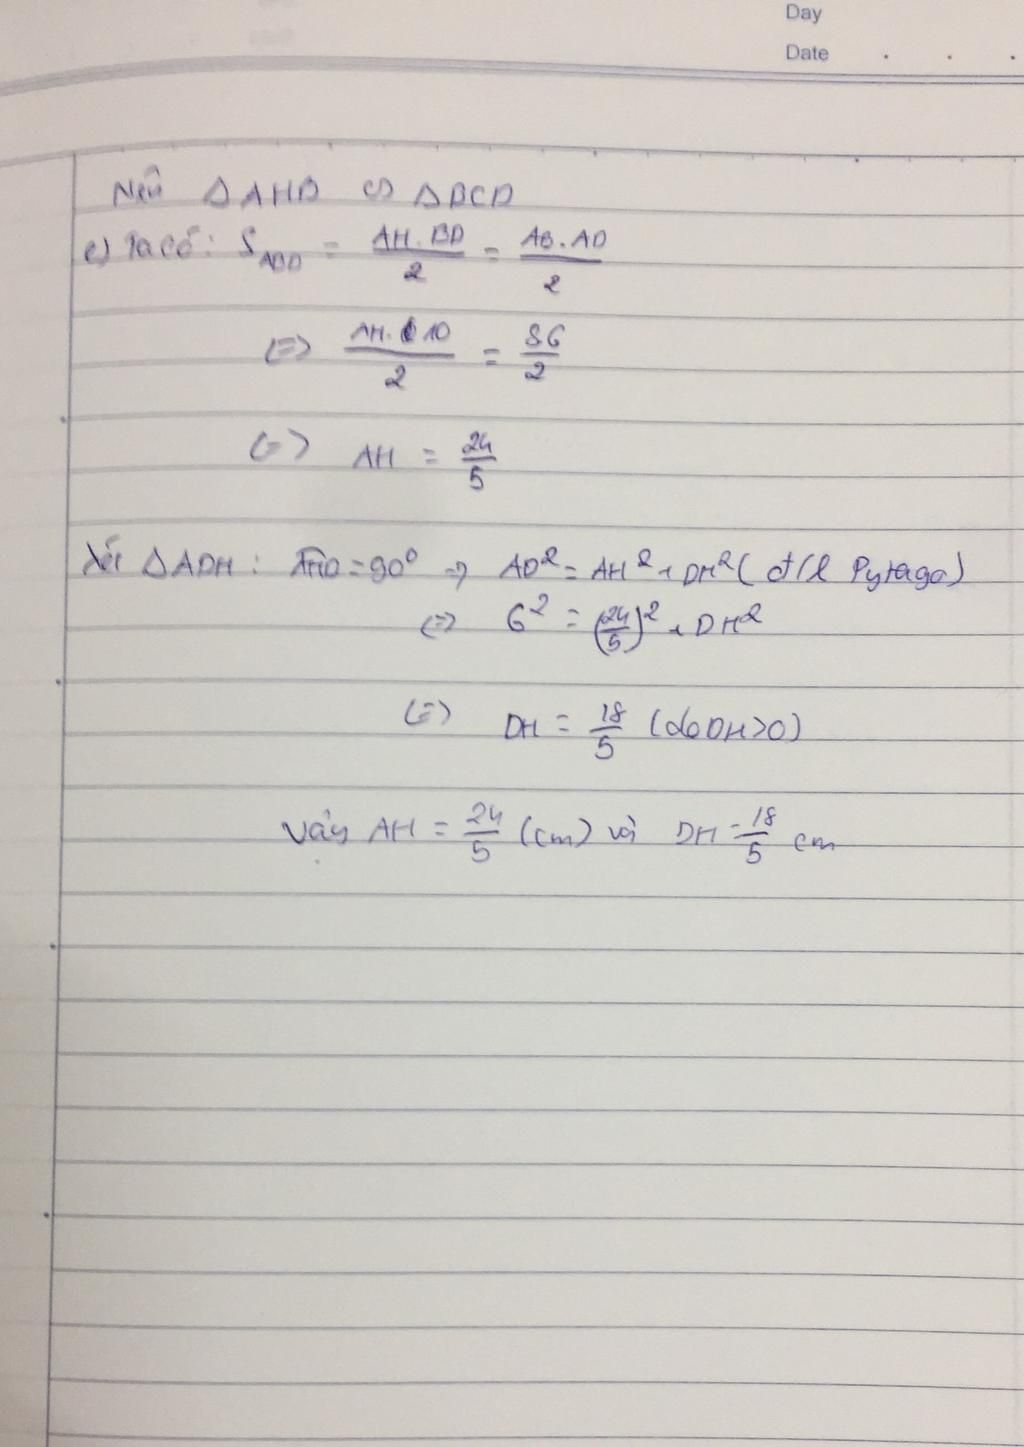 Day
Date . . .
Nên ΔAHB ∽ ΔBCD
e) Ta có: S_ABD = AH.BD/2 = AB.AD/2
<=> AH.10/2 = 8.6/2
<=> AH = 24/5
Xét ΔADH: AHD = 90° => AD² = AH² + DH² (đ/l Pytago)
<=> 6² = (24/5)² + DH²
<=> DH = 18/5 (do DH>0)
Vậy AH = 24/5 (cm) và DH = 18/5 cm